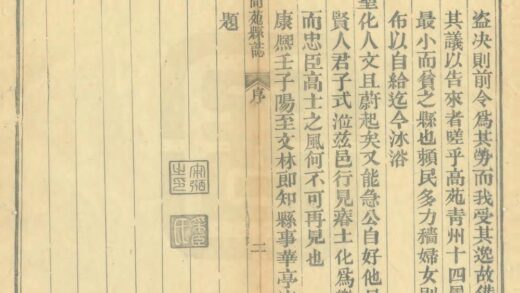 盜決則前令爲其勞而我受其逸故備
其議以告來者嗟乎高苑青州十四
最小而貧之縣也賴民多力穡婦女別
布以自給迄今沐浴
聖化人文且蔚起矣又能急公自好他
賢人君子式涖兹邑行見瘠土化爲
而忠臣高士之風何不可再見也
康熙壬子陽至文林郎知縣事華亭
題
高苑縣誌
序
二